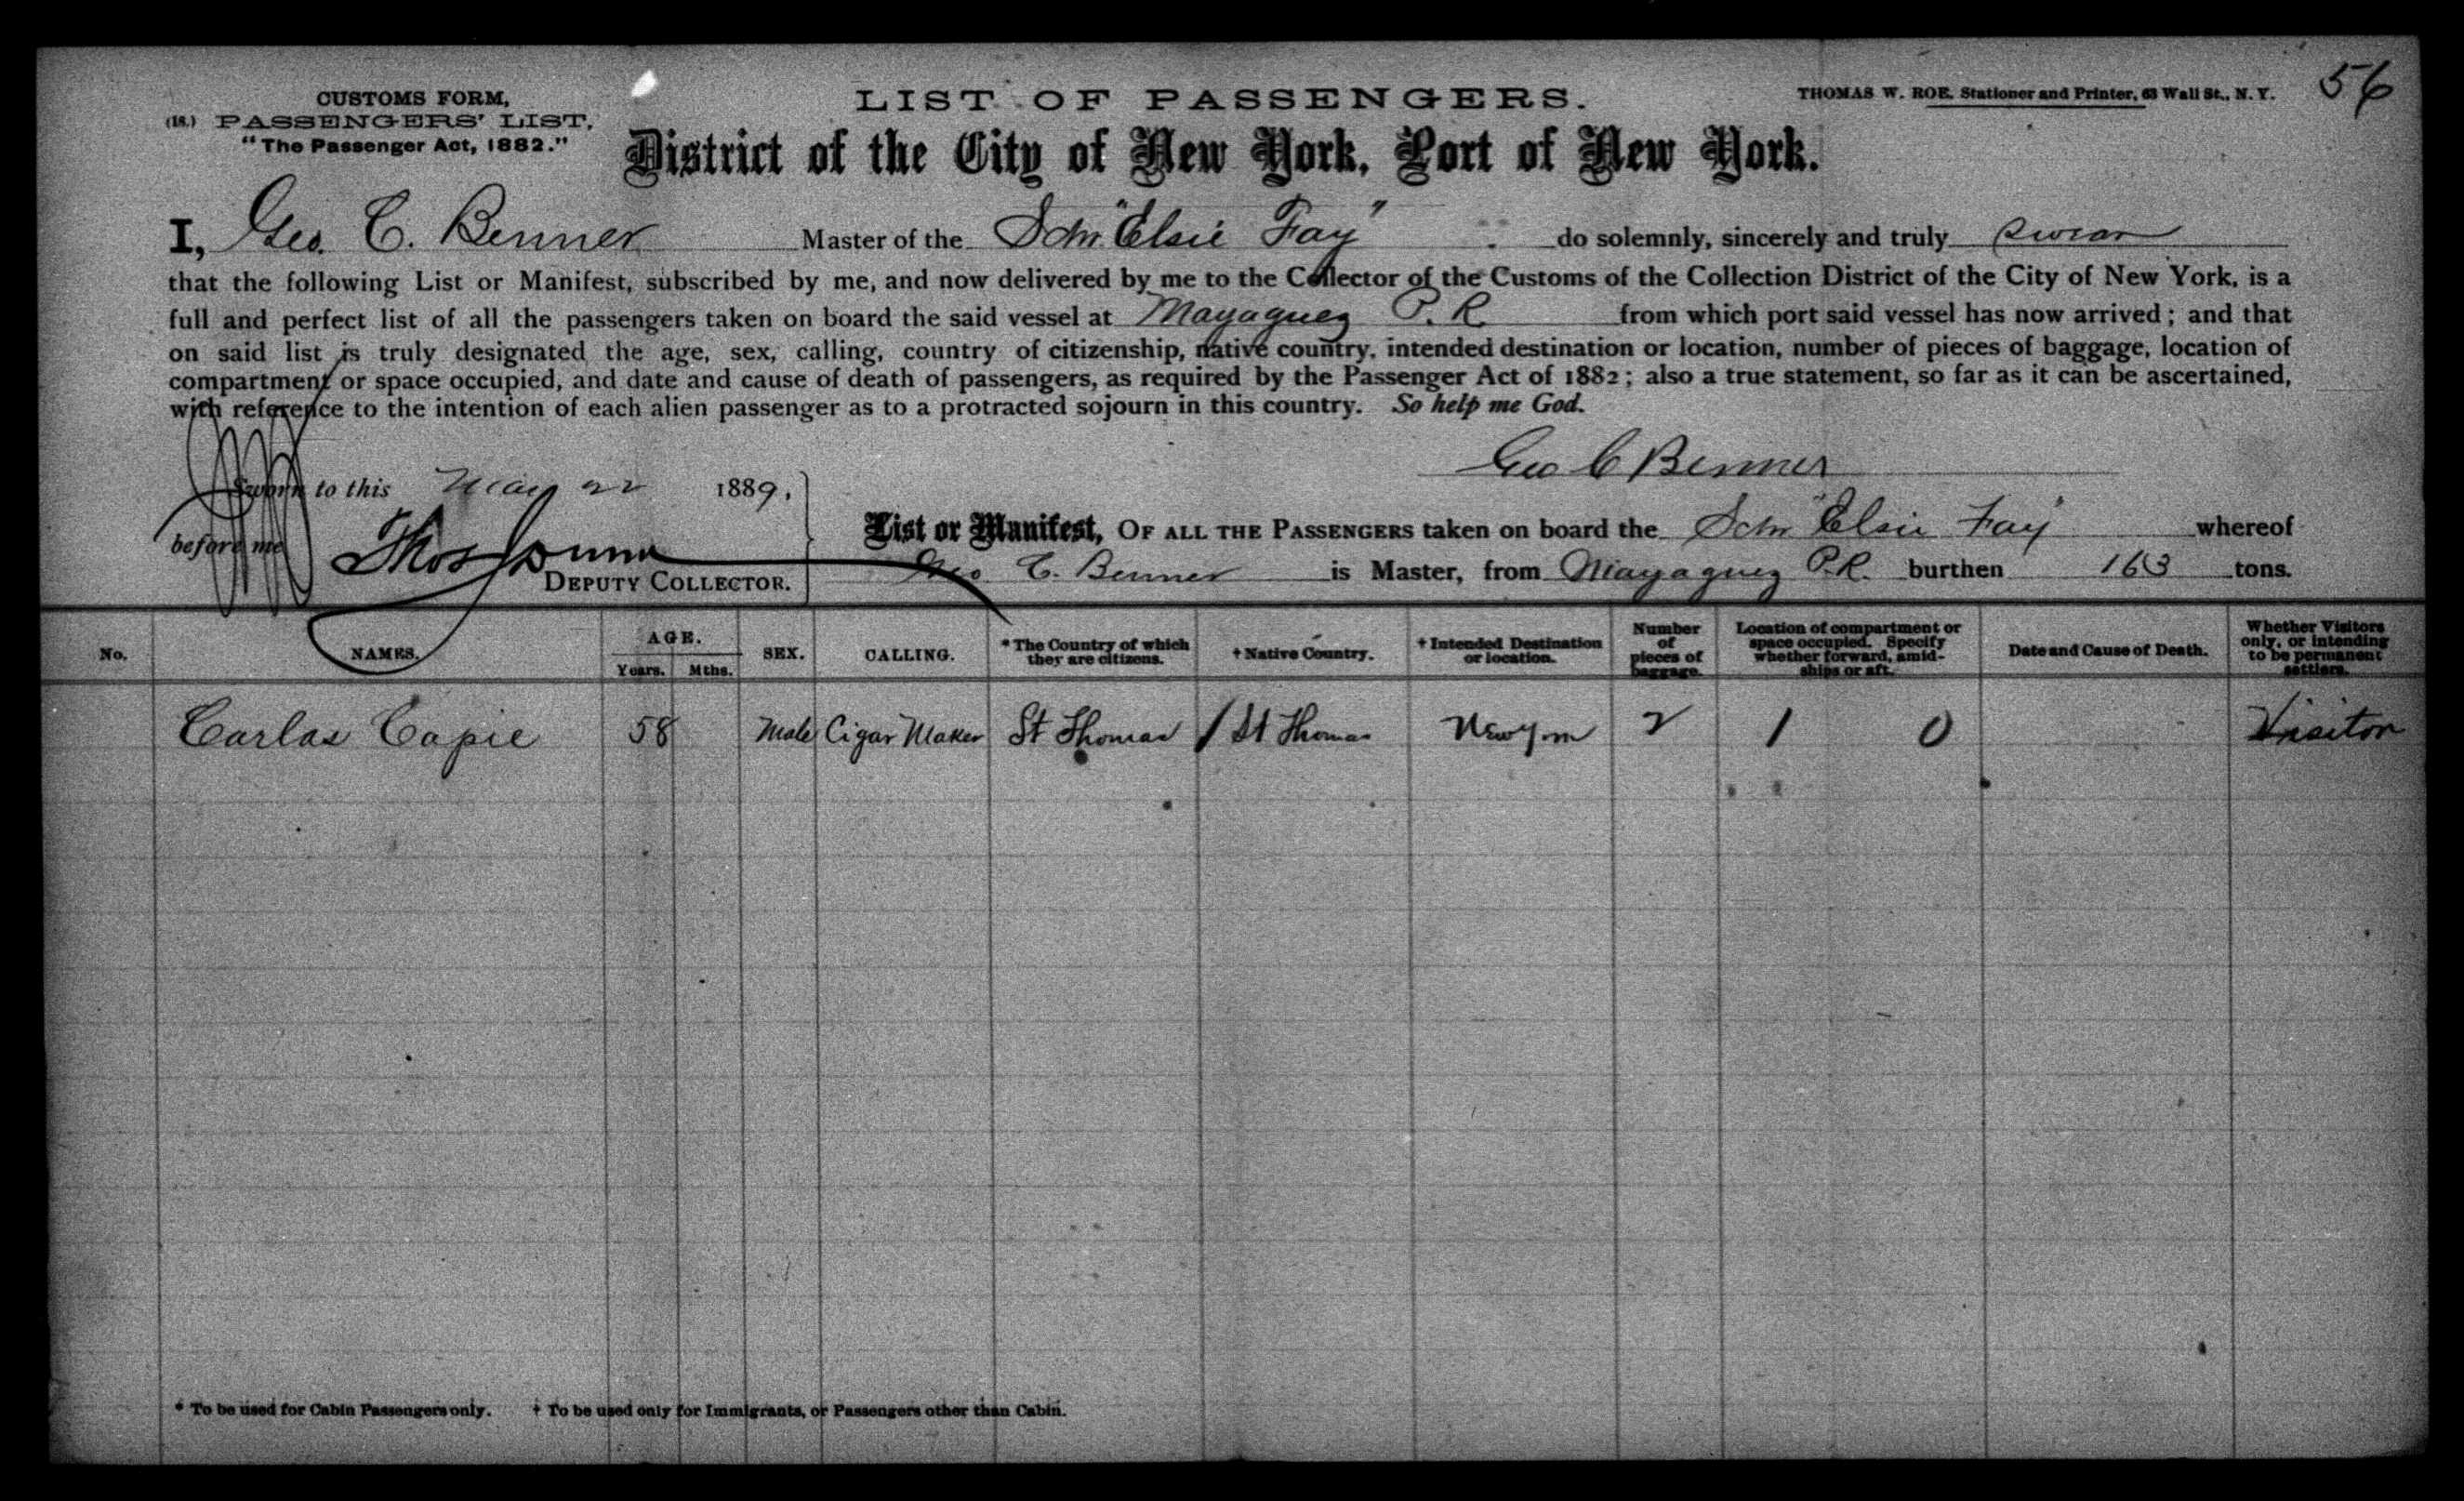 CUSTOMS FORM,
(18.) PASSENGERS' LIST,
"The Passenger Act, 1882."
LIST OF PASSENGERS.
THOMAS W. ROE, Stationer and Printer, 63 Wall St., N. Y.
56
District of the City of New York, Port of New York.
I, Geo. C. Benner Master of the Schr "Elsie Fay" do solemnly, sincerely and truly swear
that the following List or Manifest, subscribed by me, and now delivered by me to the Collector of the Customs of the Collection District of the City of New York, is a
full and perfect list of all the passengers taken on board the said vessel at Mayaguez P. R. from which port said vessel has now arrived; and that
on said list is truly designated the age, sex, calling, country of citizenship, native country, intended destination or location, number of pieces of baggage, location of
compartment or space occupied, and date and cause of death of passengers, as required by the Passenger Act of 1882; also a true statement, so far as it can be ascertained,
with reference to the intention of each alien passenger as to a protracted sojourn in this country. So help me God.
Geo C Benner
Sworn to this May 22 1889,
before me
Thos Dunn
DEPUTY COLLECTOR.
List or Manifest, OF ALL THE PASSENGERS taken on board the Schr "Elsie Fay" whereof
Geo C. Benner is Master, from Mayaguez P.R. burthen 163 tons.
No. NAMES. AGE. Years. Mths. SEX. CALLING. * The Country of which they are citizens. † Native Country. † Intended Destination or location. Number of pieces of baggage. Location of compartment or space occupied. Specify whether forward, amidships or aft. Date and Cause of Death. Whether Visitors only, or intending to be permanent settlers.
Carlas Capie 58 Male Cigar Maker St Thomas / St Thomas New York 2 1 0 Visitor
* To be used for Cabin Passengers only. † To be used only for Immigrants, or Passengers other than Cabin.